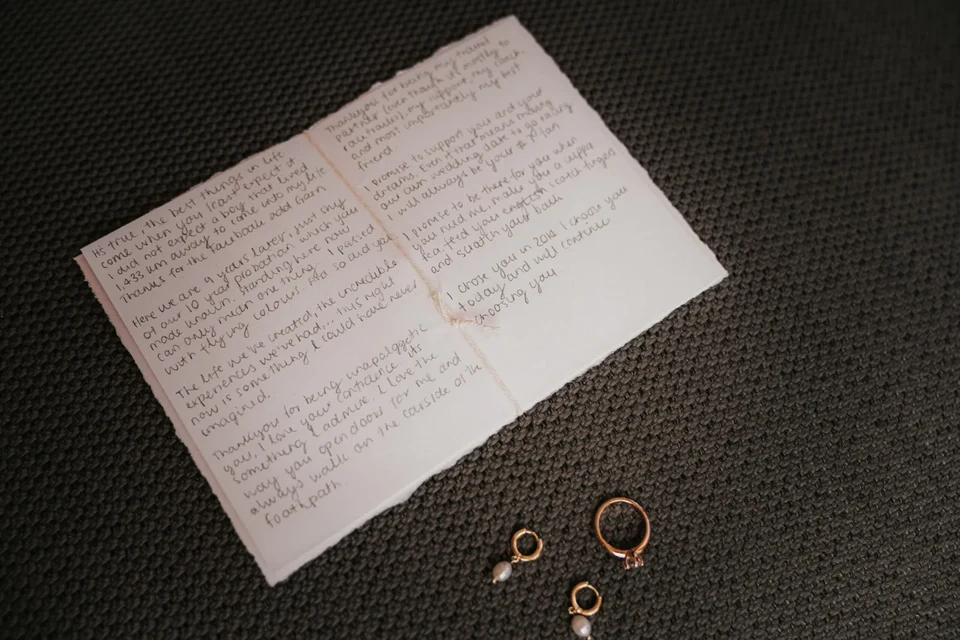 Its true, the best things in life
come when you least expect it
I did not expect a boy that lived
1,433 km away to come into my life
Thanks for the facebook add Goran
Here we are 9 years later, just shy
of our 10 year probation which you
made known. Standing here now
can only mean one thing, I passed
with flying colours. And so did you
The life we've created, the incredible
experiences we've had... this right
now is something I could have never
imagined.
Thankyou for being unapologetic
you, I love your confidence its
something I admire. I love the
way you open doors for me and
always walk on the carside of the
footpath.
Thankyou for being my travel
partner (even though it's mostly to
race tracks), my support, my coach
and most importantly my best
friend
I promise to support you and your
dreams. Even if that means moving
our own wedding date to go racing
I will always be your #1 fan
I promise to be there for you when
you need me, make you a cuppa
to feed your scotch finger
and scratch your back
I chose you in 2012 I choose you
today and will continue
choosing you